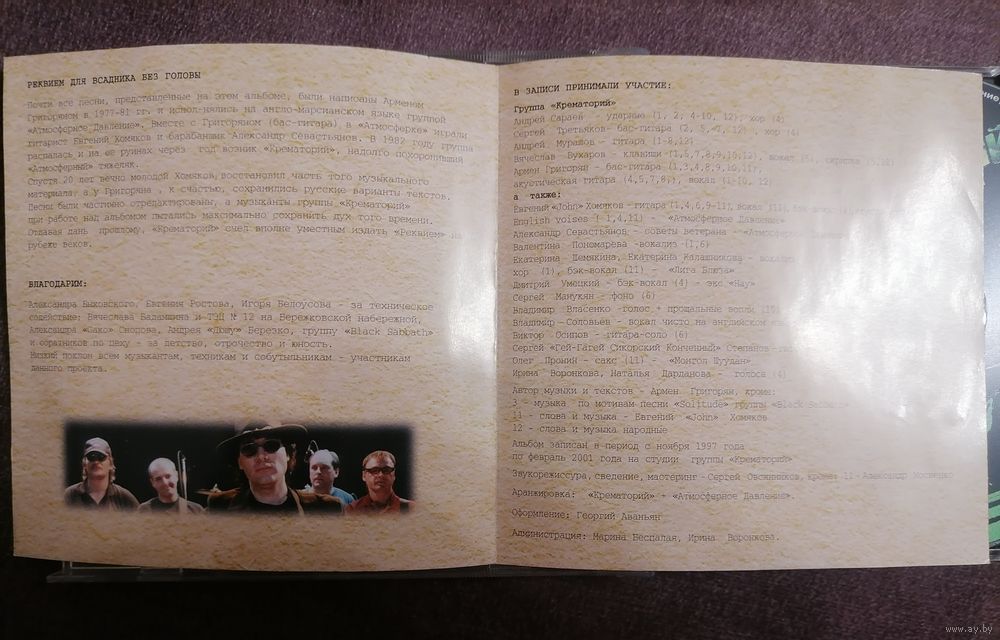 РЕКВИЕМ ДЛЯ ВСАДНИКА БЕЗ ГОЛОВЫ
Почти все песни, представленные на этом альбоме, были написаны Арменом
Григоряном в 1977-81 гг. и исполнялись на англо-марсианском языке группой
«Атмосферное Давление». Вместе с Григоряном (бас-гитара) в «Атмосферке» играли
гитарист Евгений Хомяков и барабанщик Александр Севастьянов. В 1982 году группа
распалась и на ее руинах через год возник «Крематорий», надолго похоронивший
«Атмосферный» тяжеляк.
Спустя 20 лет вечно молодой Хомяков восстановил часть того музыкального
материала, а у Григоряна, к счастью, сохранились русские варианты текстов.
Песни были частично отредактированы, а музыканты группы «Крематорий»
при работе над альбомом пытались максимально сохранить дух того времени.
Отдавая дань прошлому, «Крематорий» счел вполне уместным издать «Реквием» на
рубеже веков.
БЛАГОДАРИМ:
Александра Быковского, Евгения Ростова, Игоря Белоусова - за техническое
содействие; Вячеслава Баламшина и ТЭЦ № 12 на Бережковской набережной,
Александра «Сако» Скорова, Андрея «Дюшу» Березко, группу «Black Sabbath»
и собратиков по цеху - за детство, отрочество и юность.
Низкий поклон всем музыкантам, техникам и собутыльникам - участникам
данного проекта.
В ЗАПИСИ ПРИНИМАЛИ УЧАСТИЕ:
Группа «Крематорий»
Андрей Сараев - ударные (1, 2, 4-10, 12), хор (4)
Сергей Третьяков- бас-гитара (2, 5, 7, 12), хор (4)
Андрей Мурашов - гитара (1-8,12)
Вячеслав Бухаров - клавиши (1,5,7,8,9,10,12), вокал (5), скрипка
Армен Григорян - бас-гитара (1,3,4,8,9,10,11),
акустическая гитара (4,5,7,8), вокал (1-10, 12)
а также:
Евгений «John» Хомяков - гитара (1,4,6,9-11), вокал (11),
English voises ( 1,4,11) - «Атмосферное Давление»
Александр Севастьянов - советы ветерана - «Атмосферное
Валентина Пономарева - вокализ (1,6)
Екатерина Шемякина, Екатерина Калашникова -
хор (1), бэк-вокал (11) - «Лига Блюза»
Дмитрий Умецкий - бэк-вокал (4) - экс «Нау»
Сергей Манукян - фоно (6)
Владимир Власенко -голос + прощальные вопли
Владимир Соловьев - вокал чисто на английском
Виктор Осипов - гитара-соло (6)
Сергей «Гей-Гагей Сикорский Конченный» Степанов
Олег Пронин - сакс (11) - «Монгол Шуудан»
Ирина Воронкова, Наталья Дарданова - голоса (4)
Автор музыки и текстов - Армен Григорян, кроме:
3 - музыка по мотивам песни «Solitude» группы «Black
11 - слова и музыка - Евгений «John» Хомяков
12 - слова и музыка народные
Альбом записан в период с ноября 1997 года
по февраль 2001 года на студии группы «Крематорий»
Звукорежиссура, сведение, мастеринг - Сергей Овсянников, кроме: 11- Александр
Аранжировка: «Крематорий» + «Атмосферное Давление».
Оформление: Георгий Аваньян
Администрация: Марина Беспалая, Ирина Воронкова.
www.ay.by